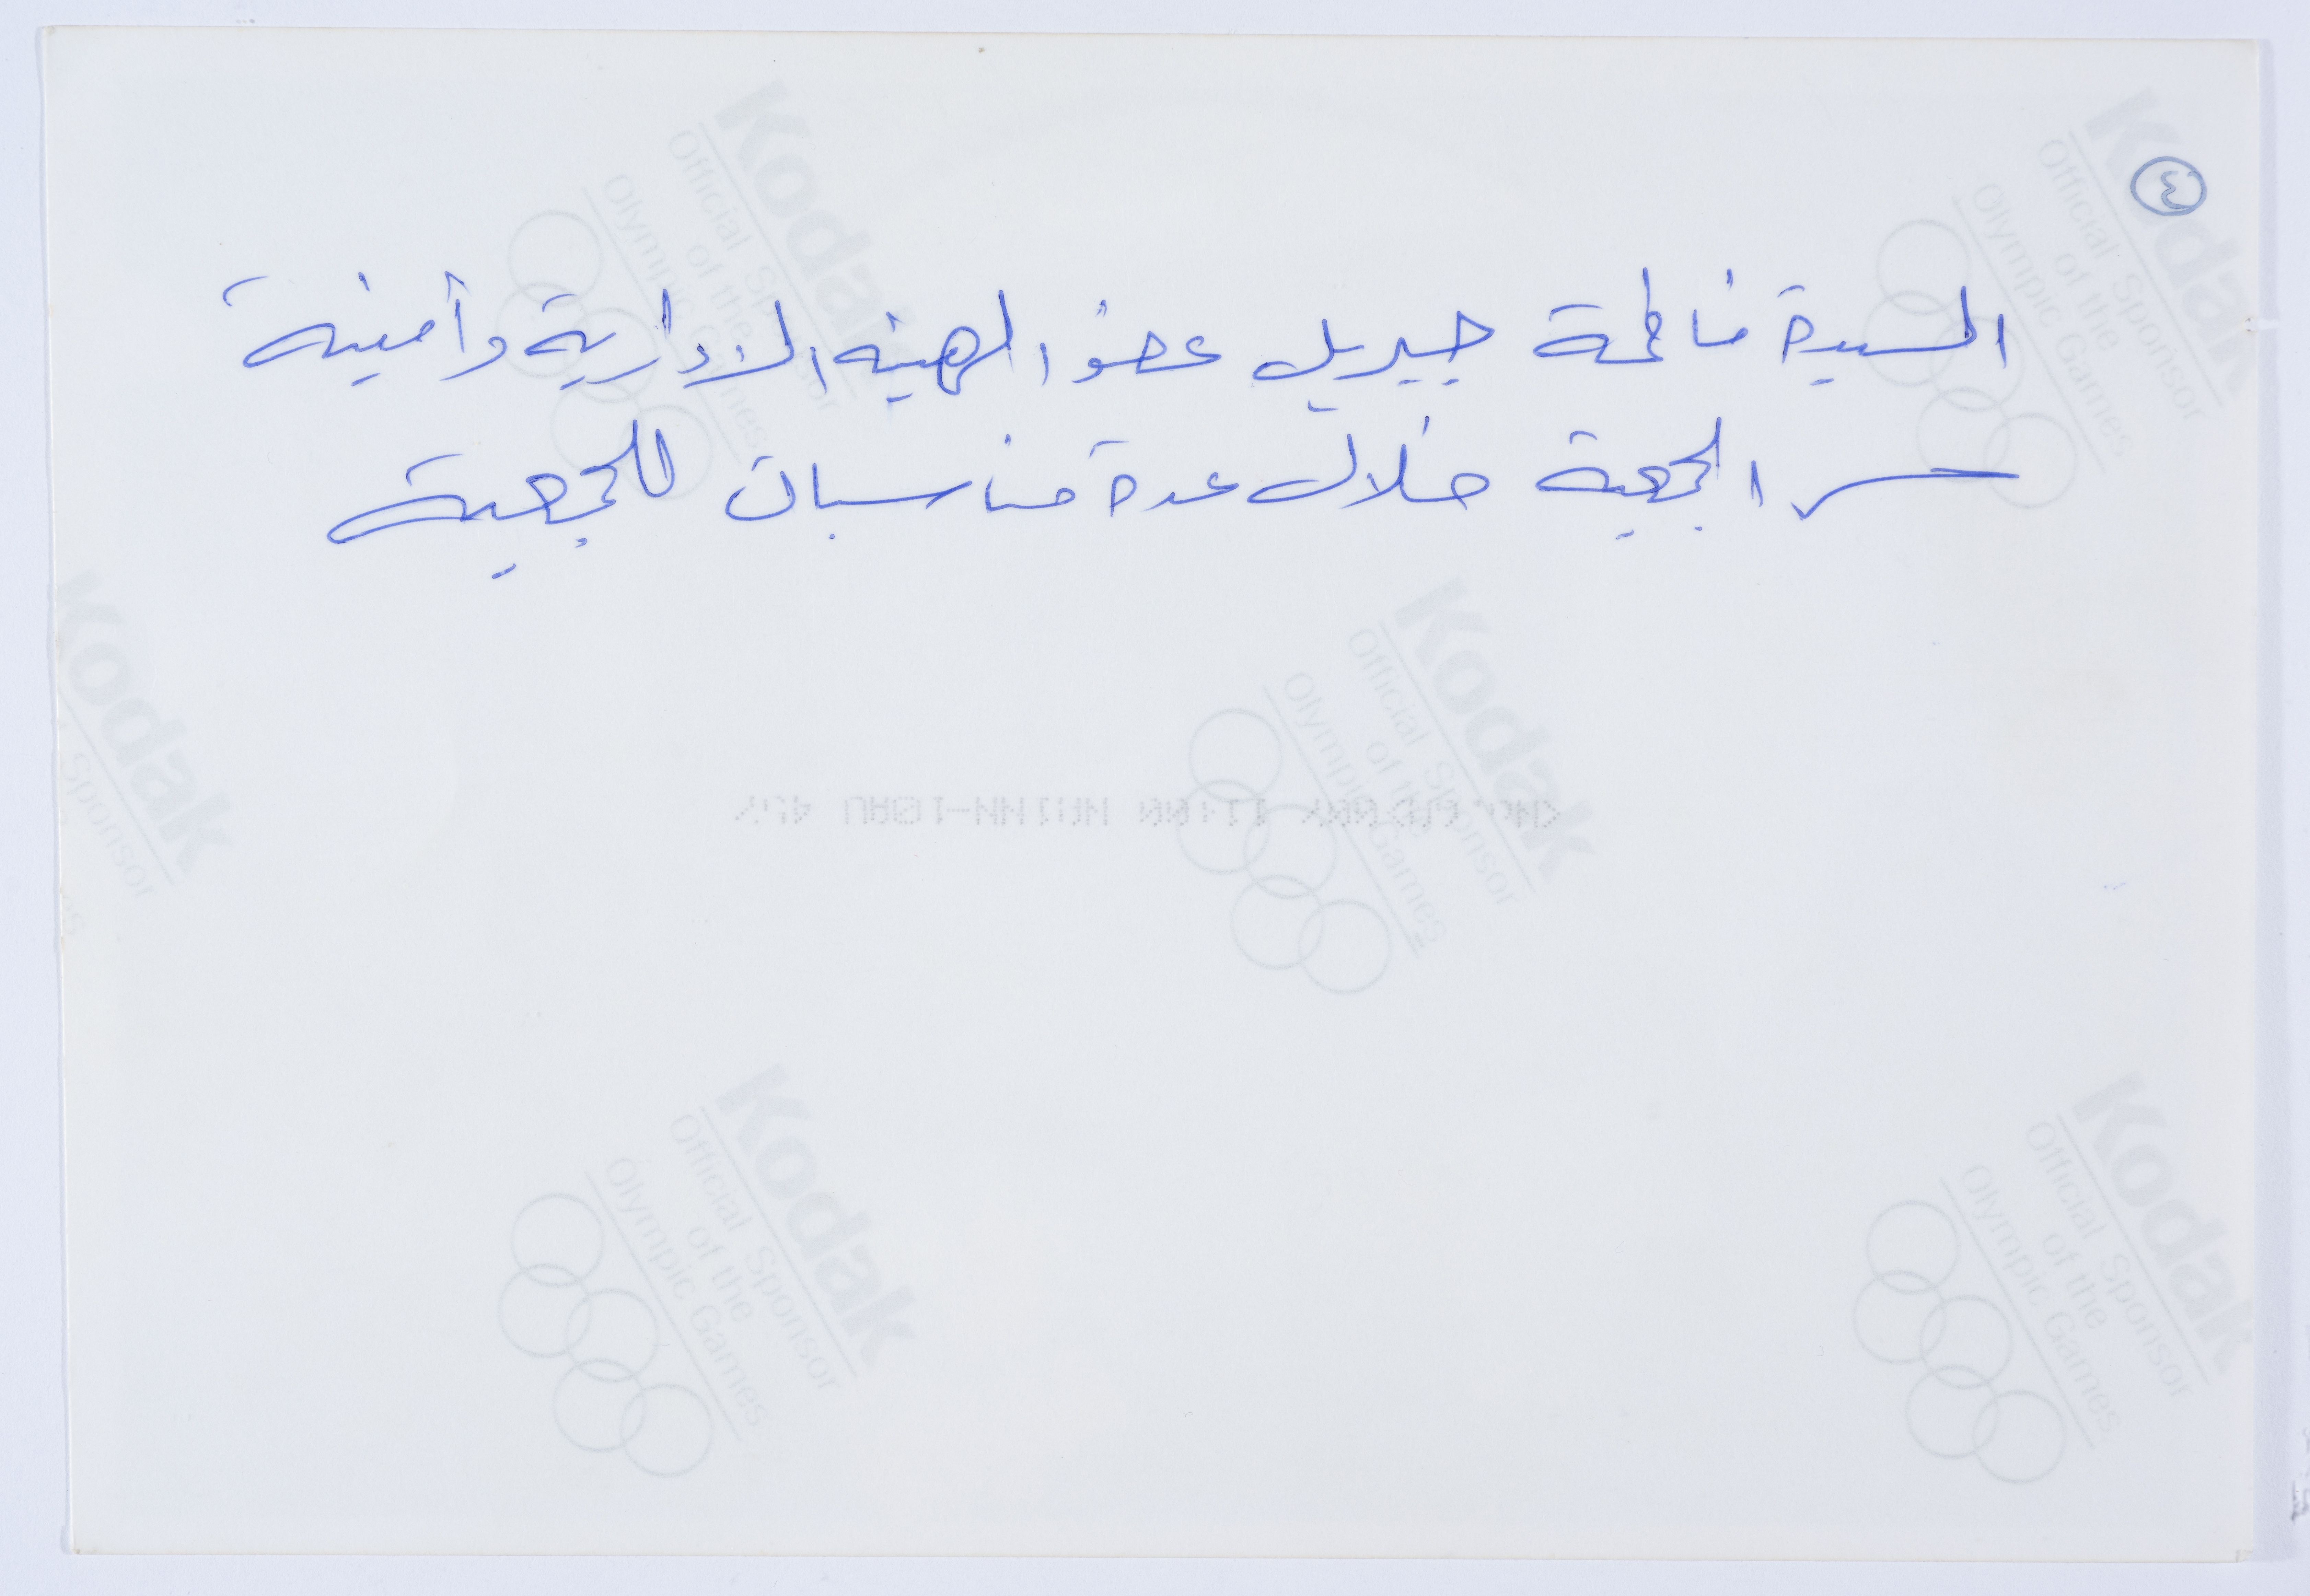 ٤
السيدة فاطمة جبريل عضو الهيئة الادارية وأمينة
سر الجمعية خلال عدة مناسبات للجمعية
Kodak
Official Sponsor
of the
Olympic Games
Kodak
Official Sponsor
of the
Olympic Games
Kodak
Sponsor
Kodak
Official Sponsor
of the
Olympic Games
Kodak
Official Sponsor
of the
Olympic Games
Kodak
Official Sponsor
of the
Olympic Games